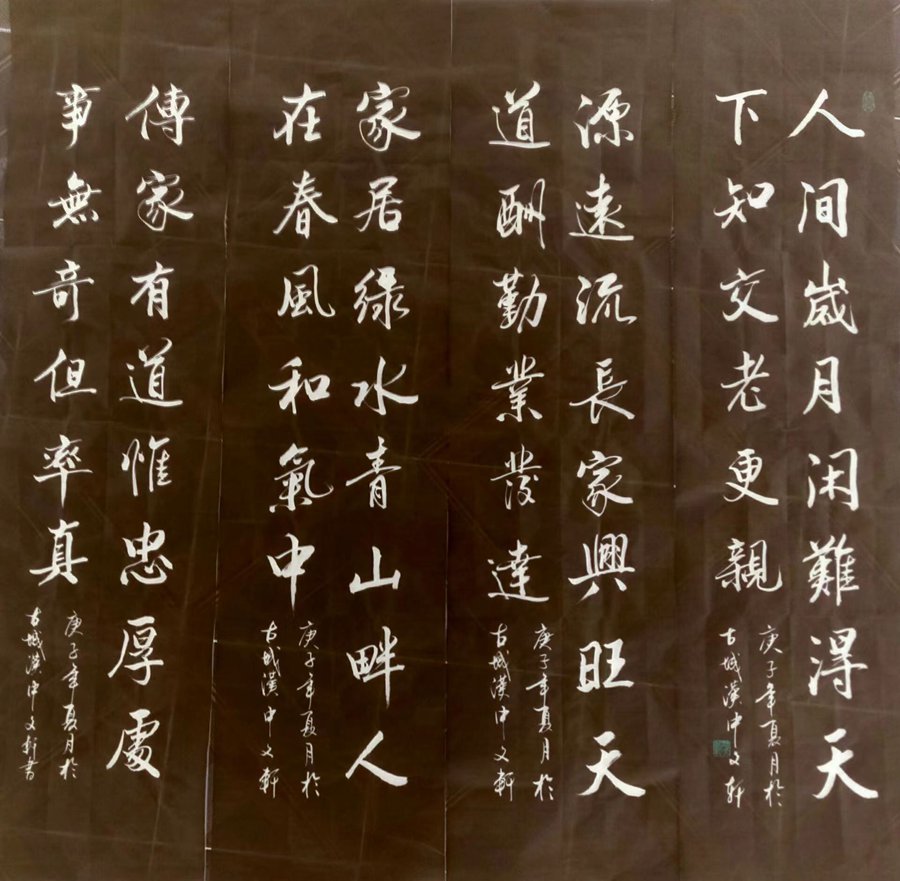 人间歲月闲難淂天
下知交老更親
庚子年夏月於
古城漢中文軒
源遠流長家興旺天
道酬勤業發達
庚子年夏月於
古城漢中文軒
家居緑水青山畔人
在春風和氣中
庚子年夏月於
古城漢中文軒
傳家有道惟忠厚處
事無奇但率真
庚子年夏月於
古城漢中文軒書